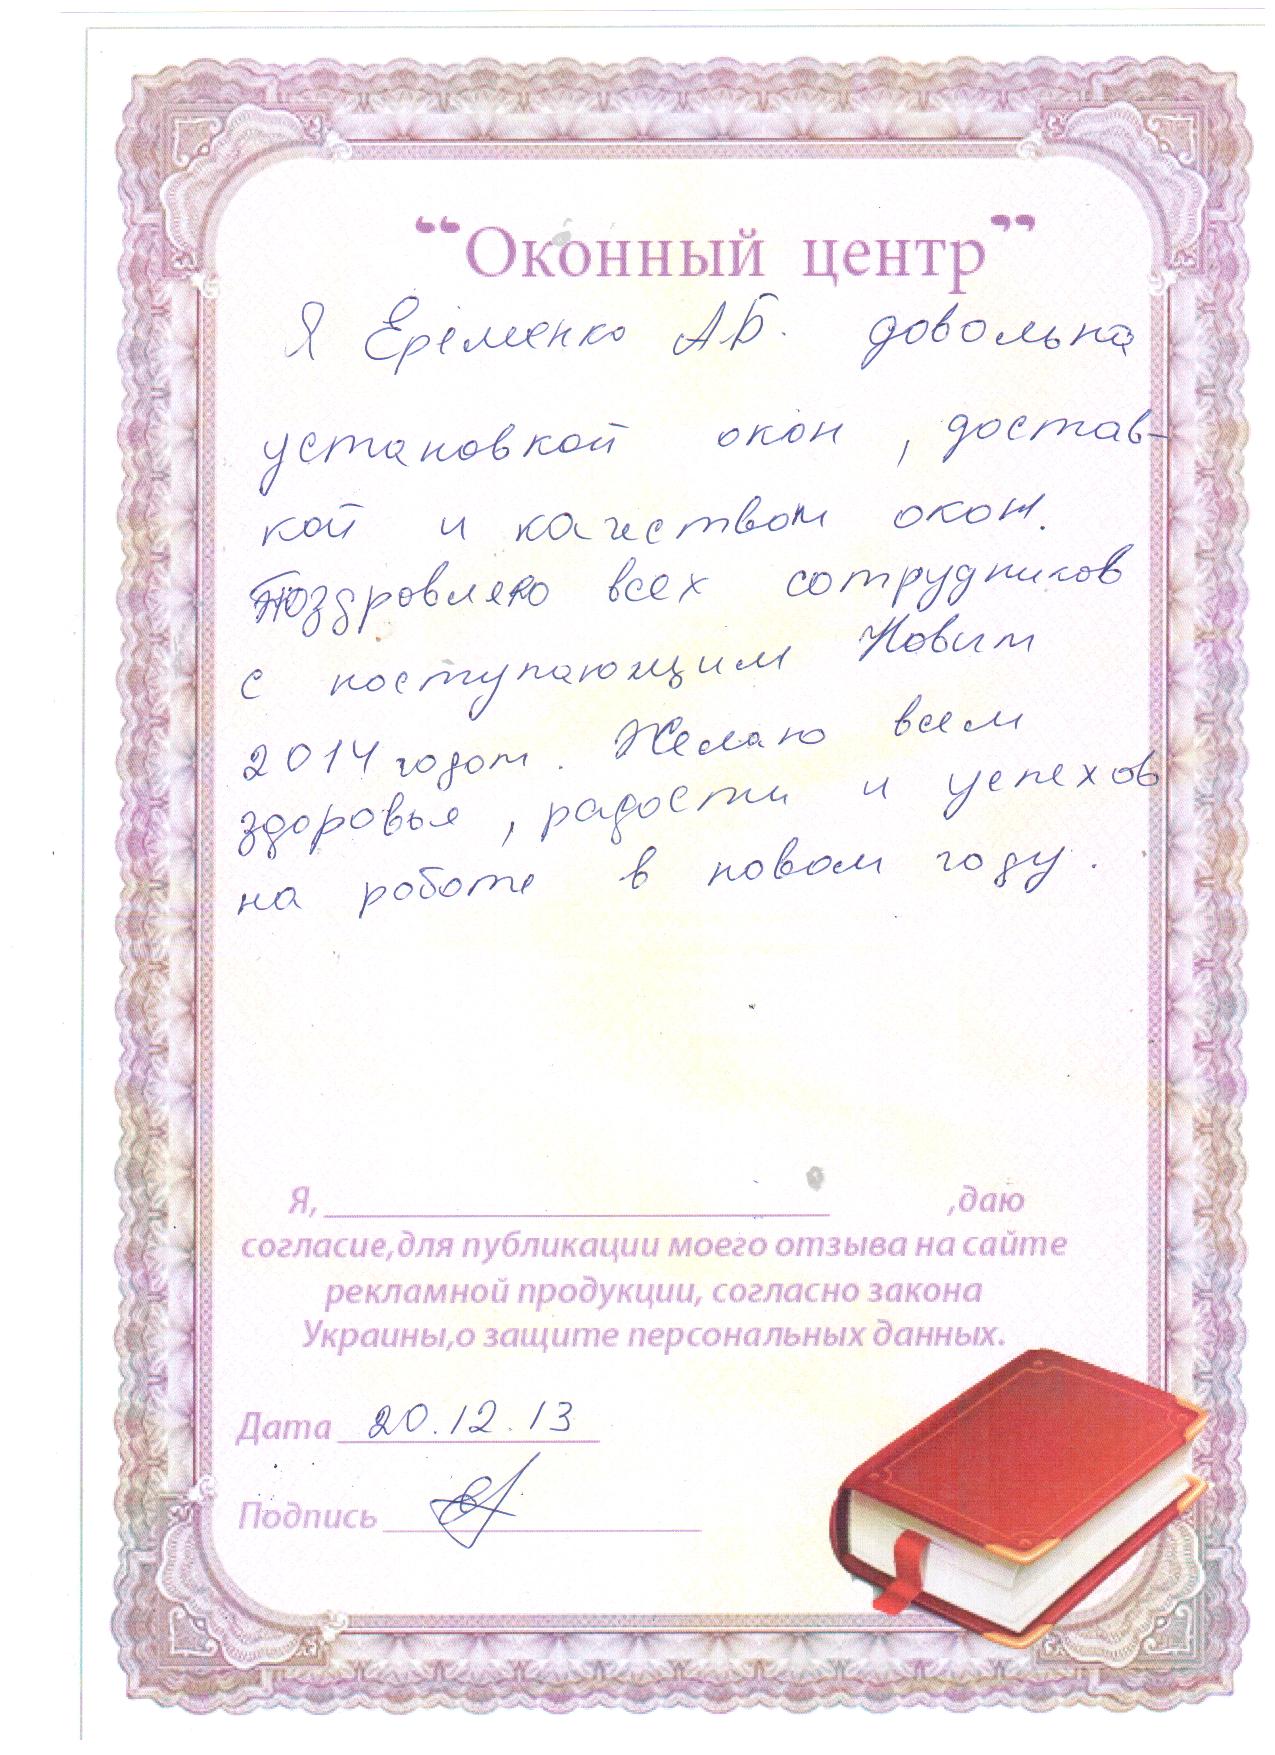 “Оконный центр”
Я Еременко А.Б. довольна
установкой окон, достав-
кой и качеством окон.
Поздровляю всех сотрудников
с ноступающим Новым
2014 годом. Желаю всем
здоровья, радости и успехов
на роботе в новом году.
Я, ,даю
согласие,для публикации моего отзыва на сайте
рекламной продукции, согласно закона
Украины,о защите персональных данных.
Дата 20.12.13
Подпись